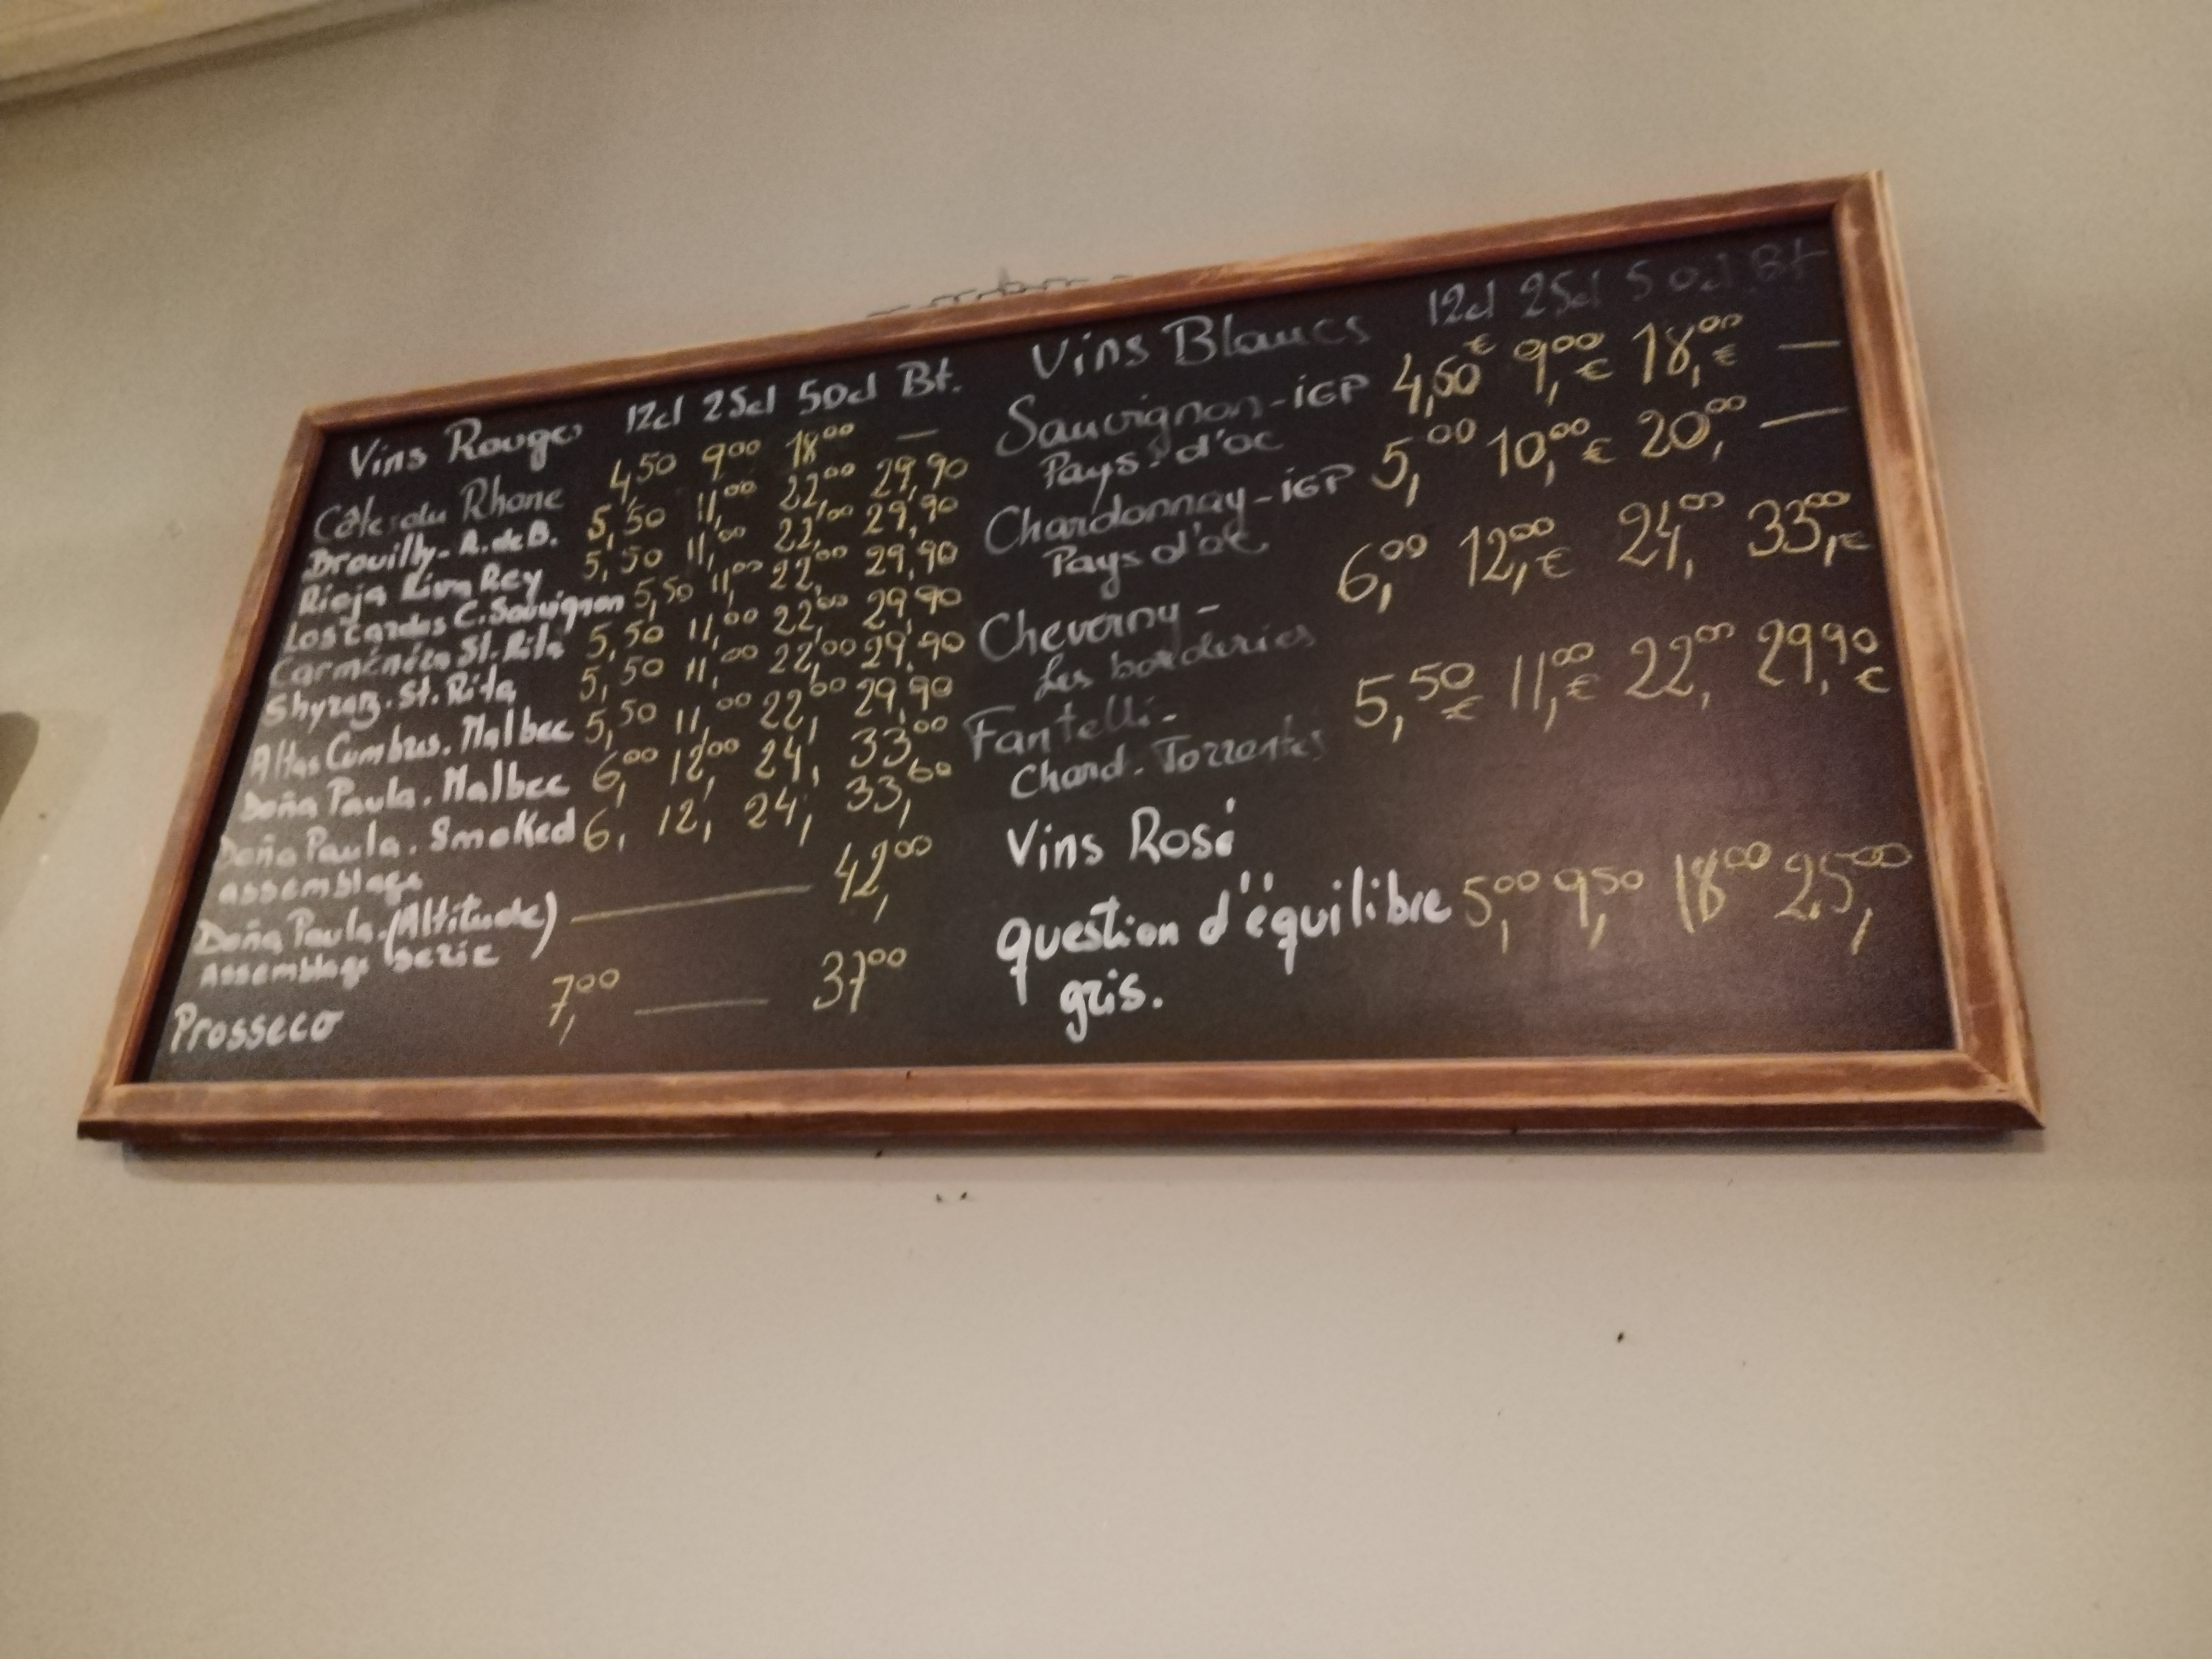 Vins Rouges 12cl 25cl 50cl Bt.
Côtes du Rhone 4,50 9,00 18,00 —
Brouilly - R. de B. 5,50 11,00 22,00 29,90
Rioja Rey 5,50 11,00 22,00 29,90
Los Cardos C. Sauvignon 5,50 11,00 22,00 29,90
Carménère St. Rita 5,50 11,00 22,00 29,90
Shyraz. St. Rita 5,50 11,00 22,00 29,90
Altas Cumbres. Malbec 5,50 11,00 22,00 29,90
Doña Paula. Malbec 6,00 12,00 24, 33,00
Doña Paula. Smoked 6, 12, 24, 33,00
assemblage
Doña Paula. (Altitude) — 42,00
Assemblage Serie
Prosseco 7,00 — 37,00
Vins Blancs 12cl 25cl 50cl Bt
Sauvignon - iGP 4,50€ 9,00€ 18,00€ —
Pays d'oc
Chardonnay - iGP 5,00 10,00€ 20,00 —
Pays d'oc
Cheverny - 6,00 12,00€ 24,00 33,00€
Les borderies
Fantelli - 5,50€ 11,00€ 22,00 29,90€
Chard. Torrontes
Vins Rosé
question d'équilibre 5,00 9,50 18,00 25,00
gris.